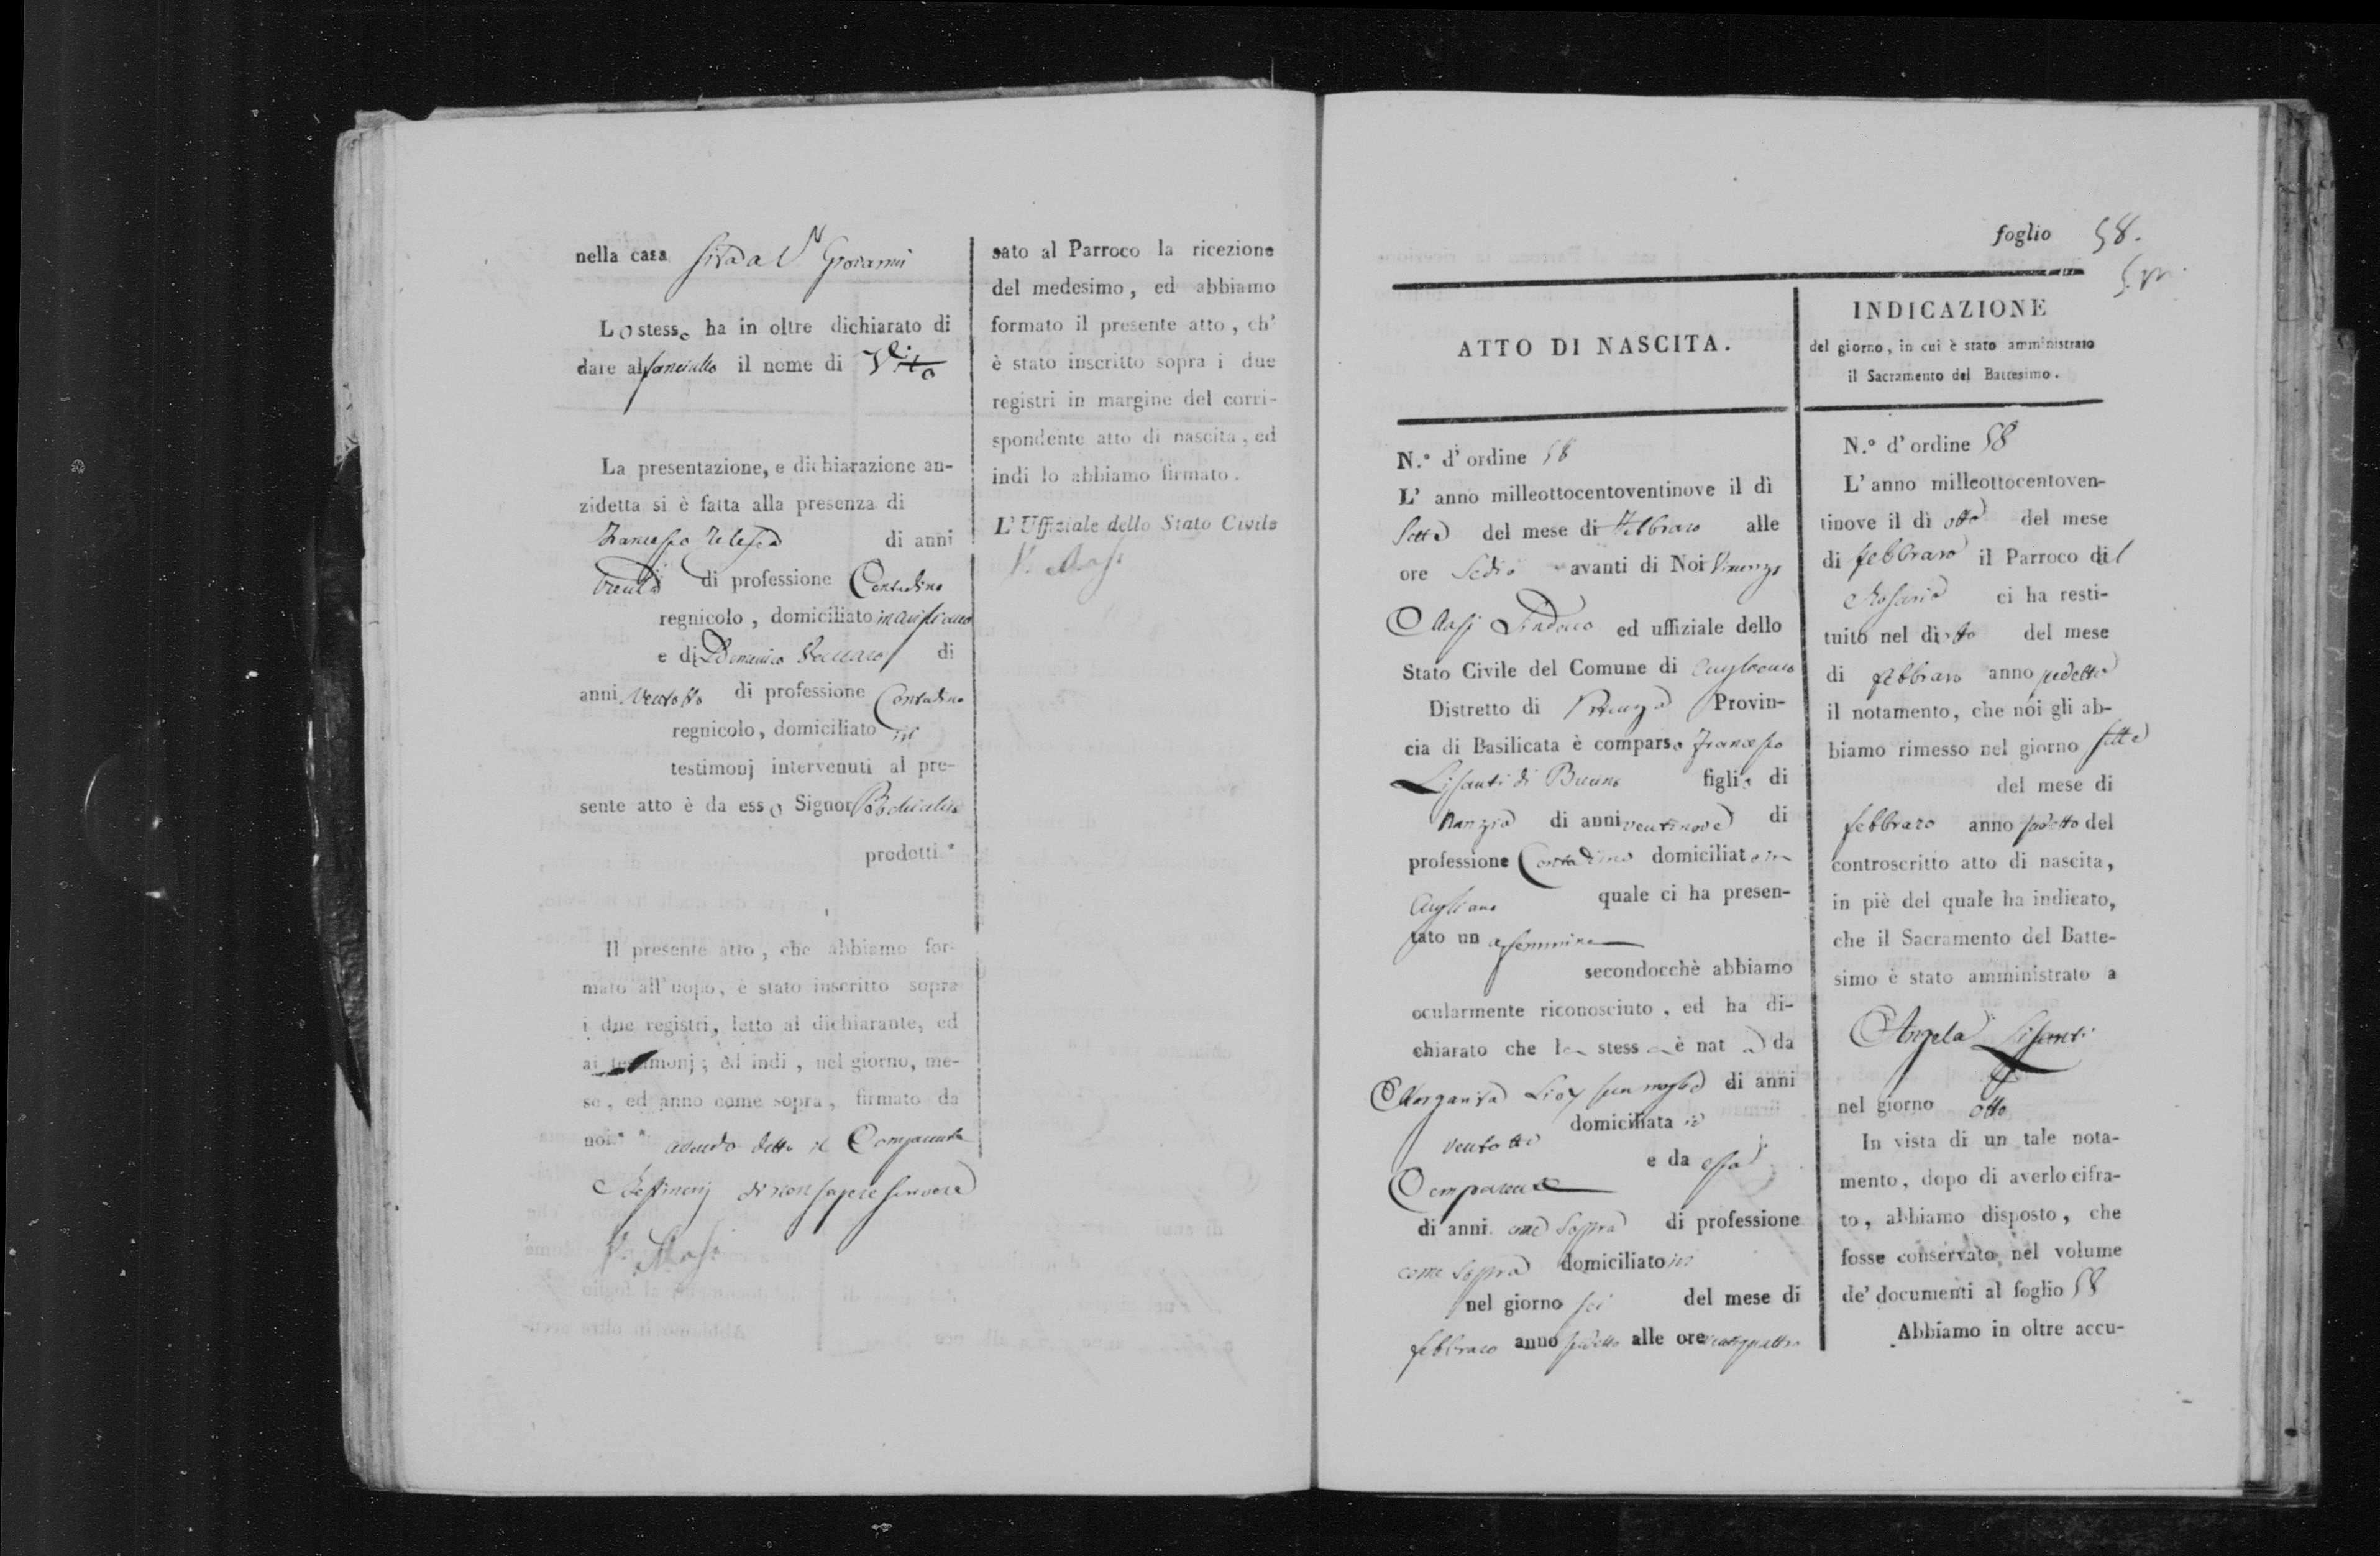 nella casa strada S.N Giovanni
Lo stesso ha in oltre dichiarato di
dare al fanciullo il nome di Vito
La presentazione, e dichiarazione an-
zidetta si è fatta alla presenza di
Francesco Telesca di anni
trenta di professione Contadino
regnicolo, domiciliato in Avigliano
e di Domenico di
anni ventotto di professione Contadino
regnicolo, domiciliato ivi
testimonj intervenuti al pre-
sente atto è da esso Signor
prodotti *
Il presente atto, che abbiamo for-
mato all'uopo, è stato inscritto sopra
i due registri, letto al dichiarante, ed
ai testimonj; ed indi, nel giorno, me-
se, ed anno come sopra, firmato da
noi * * avendo detto il Comparente
e testimonj di non sapere scrivere
V. Masi
sato al Parroco la ricezione
del medesimo, ed abbiamo
formato il presente atto, ch'
è stato inscritto sopra i due
registri in margine del corri-
spondente atto di nascita, ed
indi lo abbiamo firmato.
L'Uffiziale dello Stato Civile
V. Masi
foglio 58.
ATTO DI NASCITA.
N.° d'ordine 58
L' anno milleottocentoventinove il dì
Sette del mese di Febbraro alle
ore Sedici avanti di Noi Vincenzo
Masi Sindaco ed uffiziale dello
Stato Civile del Comune di Avigliano
Distretto di Potenza Provin-
cia di Basilicata è comparso Francesco
Lisanti di figlio di
Nunzio di anni ventinove di
professione Contadino domiciliato in
Avigliano quale ci ha presen-
tato una femmina
secondocchè abbiamo
ocularmente riconosciuto, ed ha di-
chiarato che la stessa è nata da
Margarita Lioy sua moglie di anni
ventotto domiciliata ivi
e da esso
Comparente
di anni come sopra di professione
come sopra domiciliato ivi
nel giorno sei del mese di
febbraro anno sudetto alle ore ventiquattro
INDICAZIONE
del giorno, in cui è stato amministrato
il Sacramento del Battesimo.
N.° d'ordine 58
L'anno milleottocentoven-
tinove il dì otto del mese
di febbraro il Parroco del
Rosario ci ha resti-
tuito nel dì otto del mese
di febbraro anno sudetto
il notamento, che noi gli ab-
biamo rimesso nel giorno sette
del mese di
febbraro anno sudetto del
controscritto atto di nascita,
in piè del quale ha indicato,
che il Sacramento del Batte-
simo è stato amministrato a
Angela Lisanti
nel giorno otto
In vista di un tale nota-
mento, dopo di averlo cifra-
to, abbiamo disposto, che
fosse conservato nel volume
de' documenti al foglio 58
Abbiamo in oltre accu-